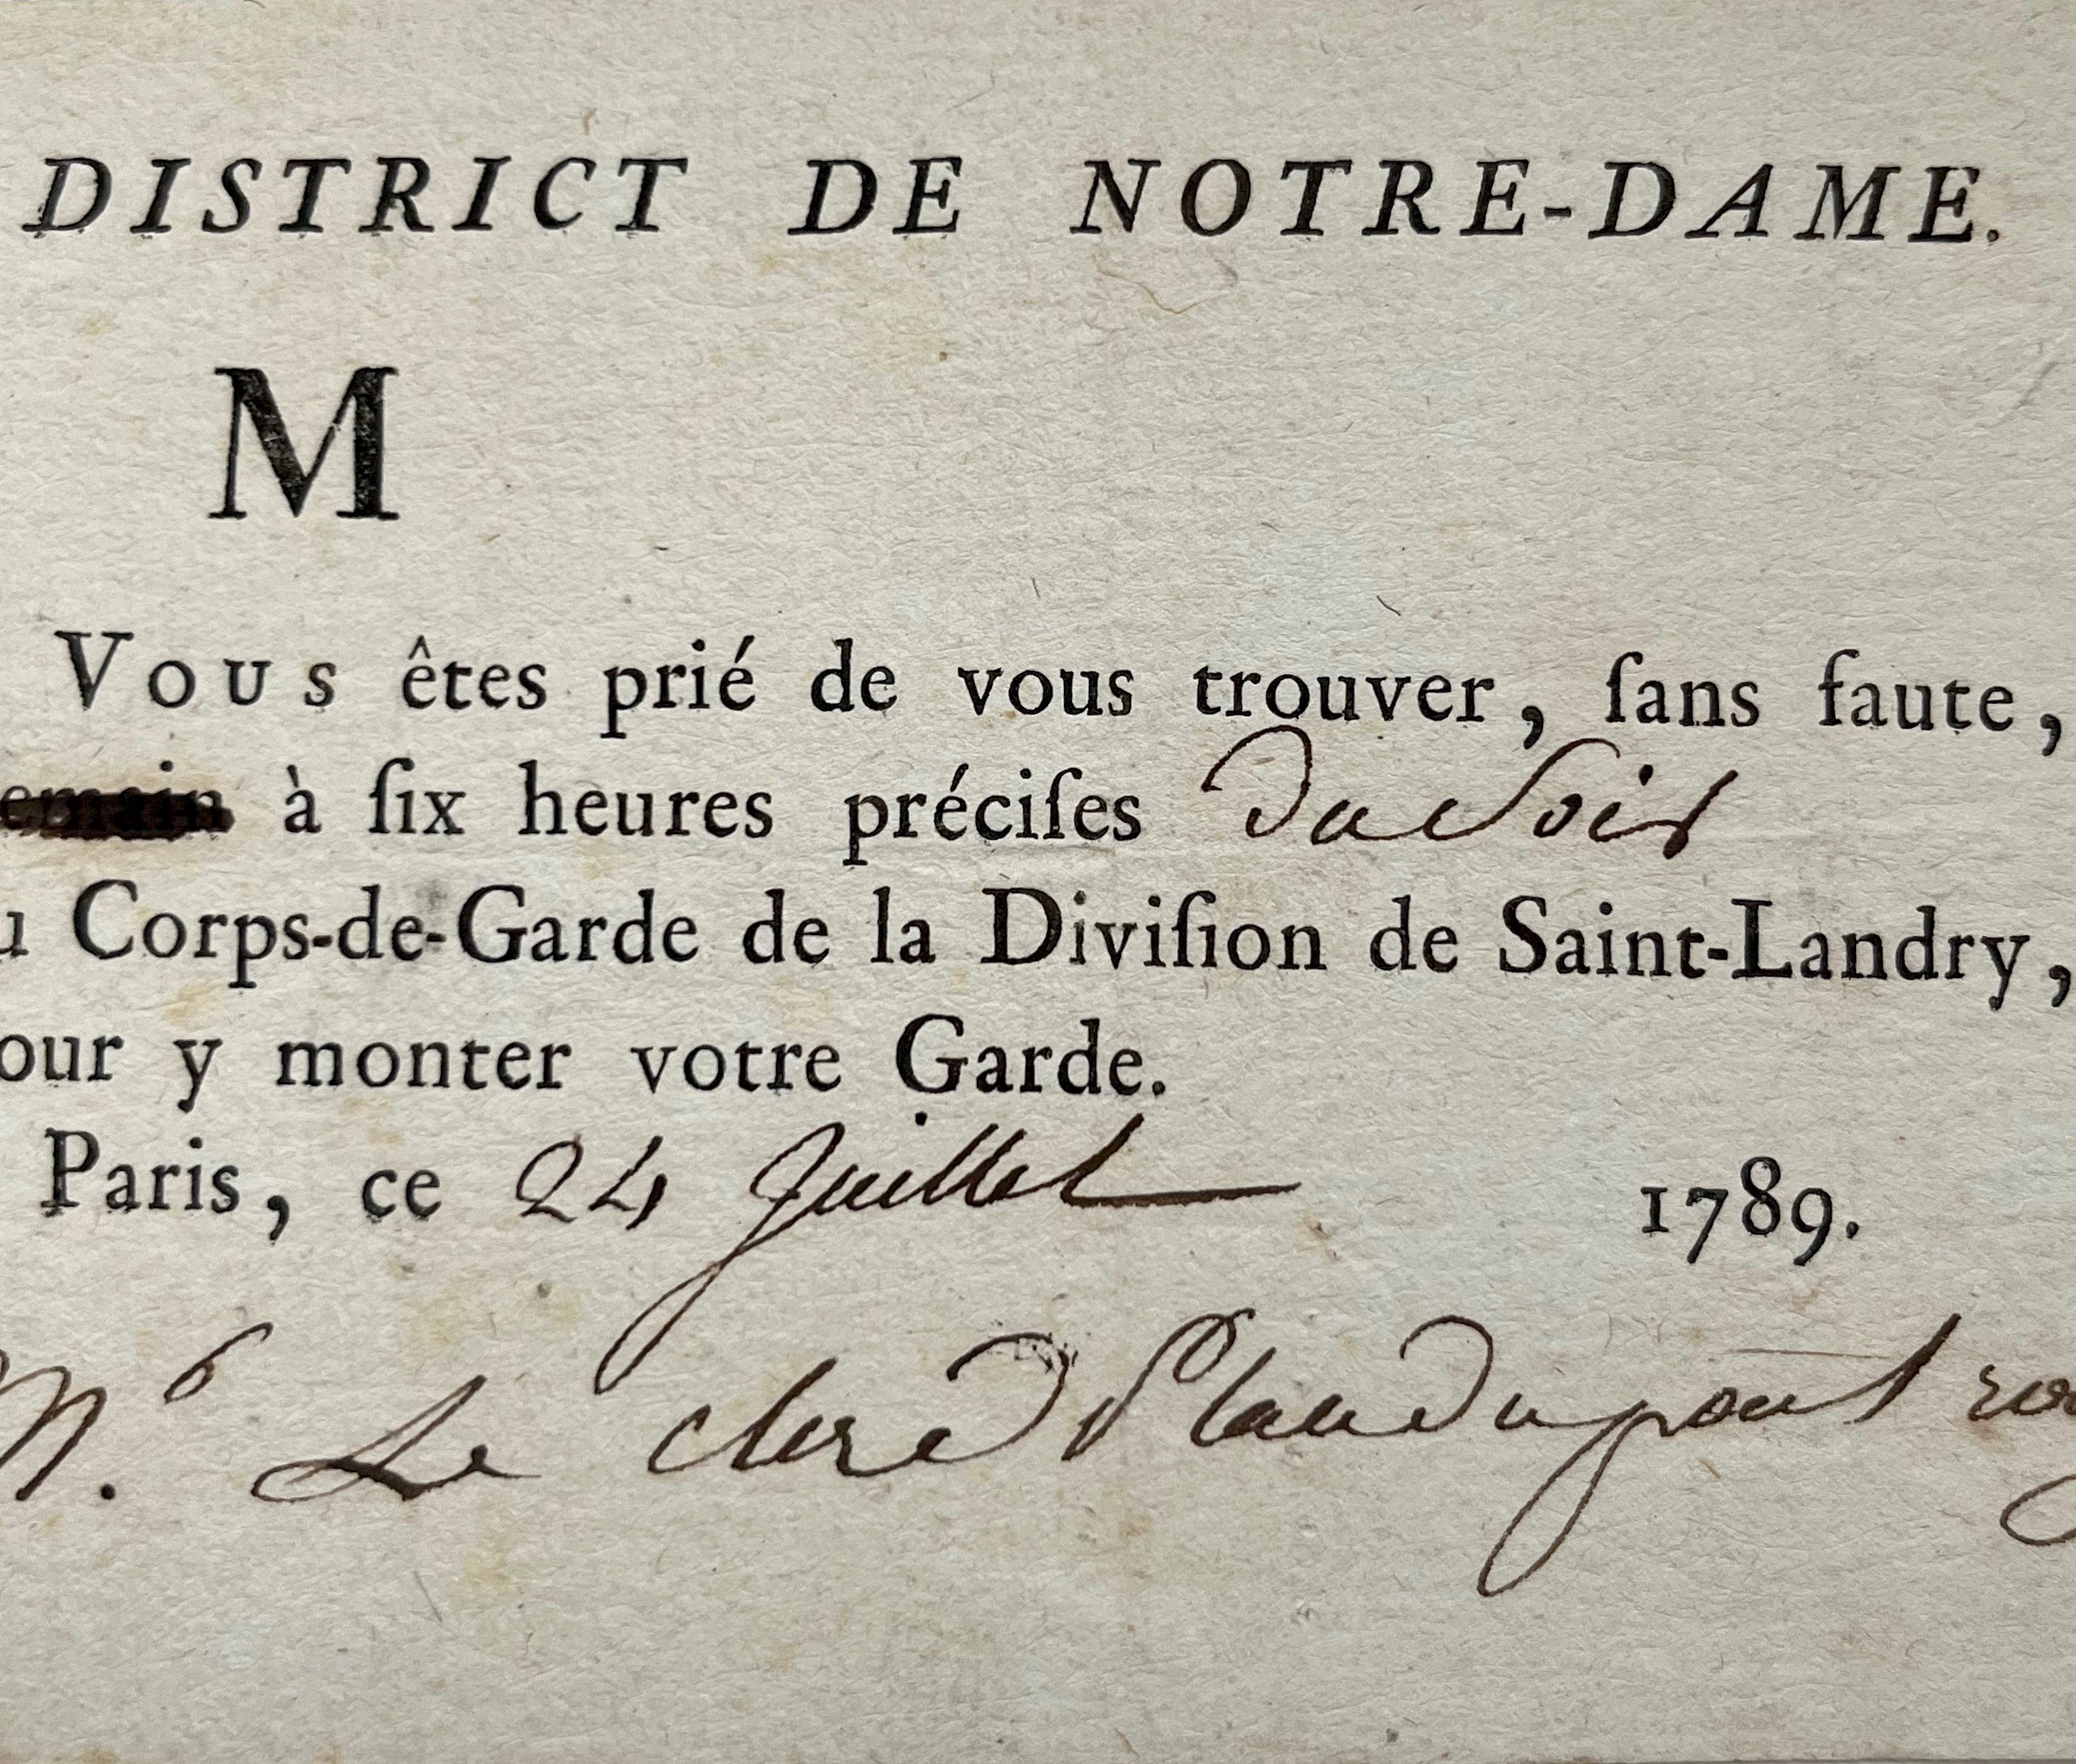 DISTRICT DE NOTRE-DAME.
M
Vous êtes prié de vous trouver, ſans faute,
emain à ſix heures préciſes du Soir
u Corps-de-Garde de la Diviſion de Saint-Landry,
our y monter votre Garde.
Paris, ce 24 Juillet 1789.
Le clerc du pont